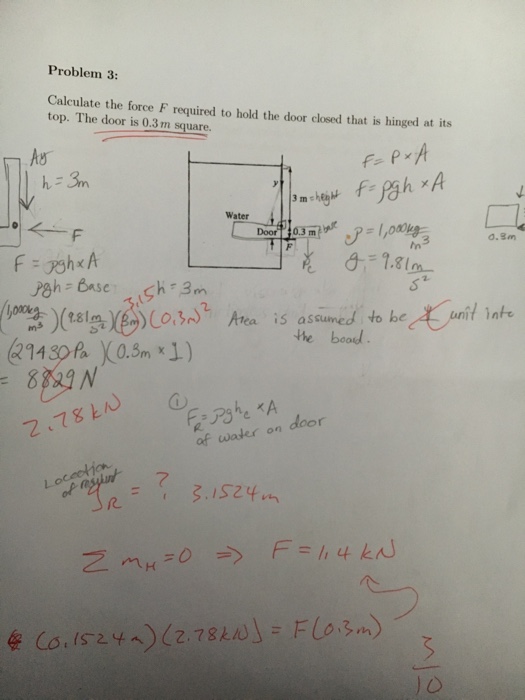 Problem 3:
Calculate the force F required to hold the door closed that is hinged at its
top. The door is 0.3 m square.
h = 3m
F
F = P × A
F = ρgh × A
y
3 m = height
Water
Door
0.3 m
F
ρ = 1,000 kg/m³
g = 9.81 m/s²
0.3m
F = ρgh × A
ρgh = Base
h = 3m
3.15
(1,000 kg/m³)(9.81 m/s²)(3m)(0.3m)²
Area is assumed to be 1 unit into
the board.
(29430 Pa)(0.3m × 1)
= 8829 N
2.78 kN
① F_R = ρgh_c × A
of water on door
Location
of resultant
y_R = ? 3.1524 m
Σ m_H = 0 ⇒ F = 1.4 kN
(0.1524 m)(2.78kN) = F(0.3m)
3
10